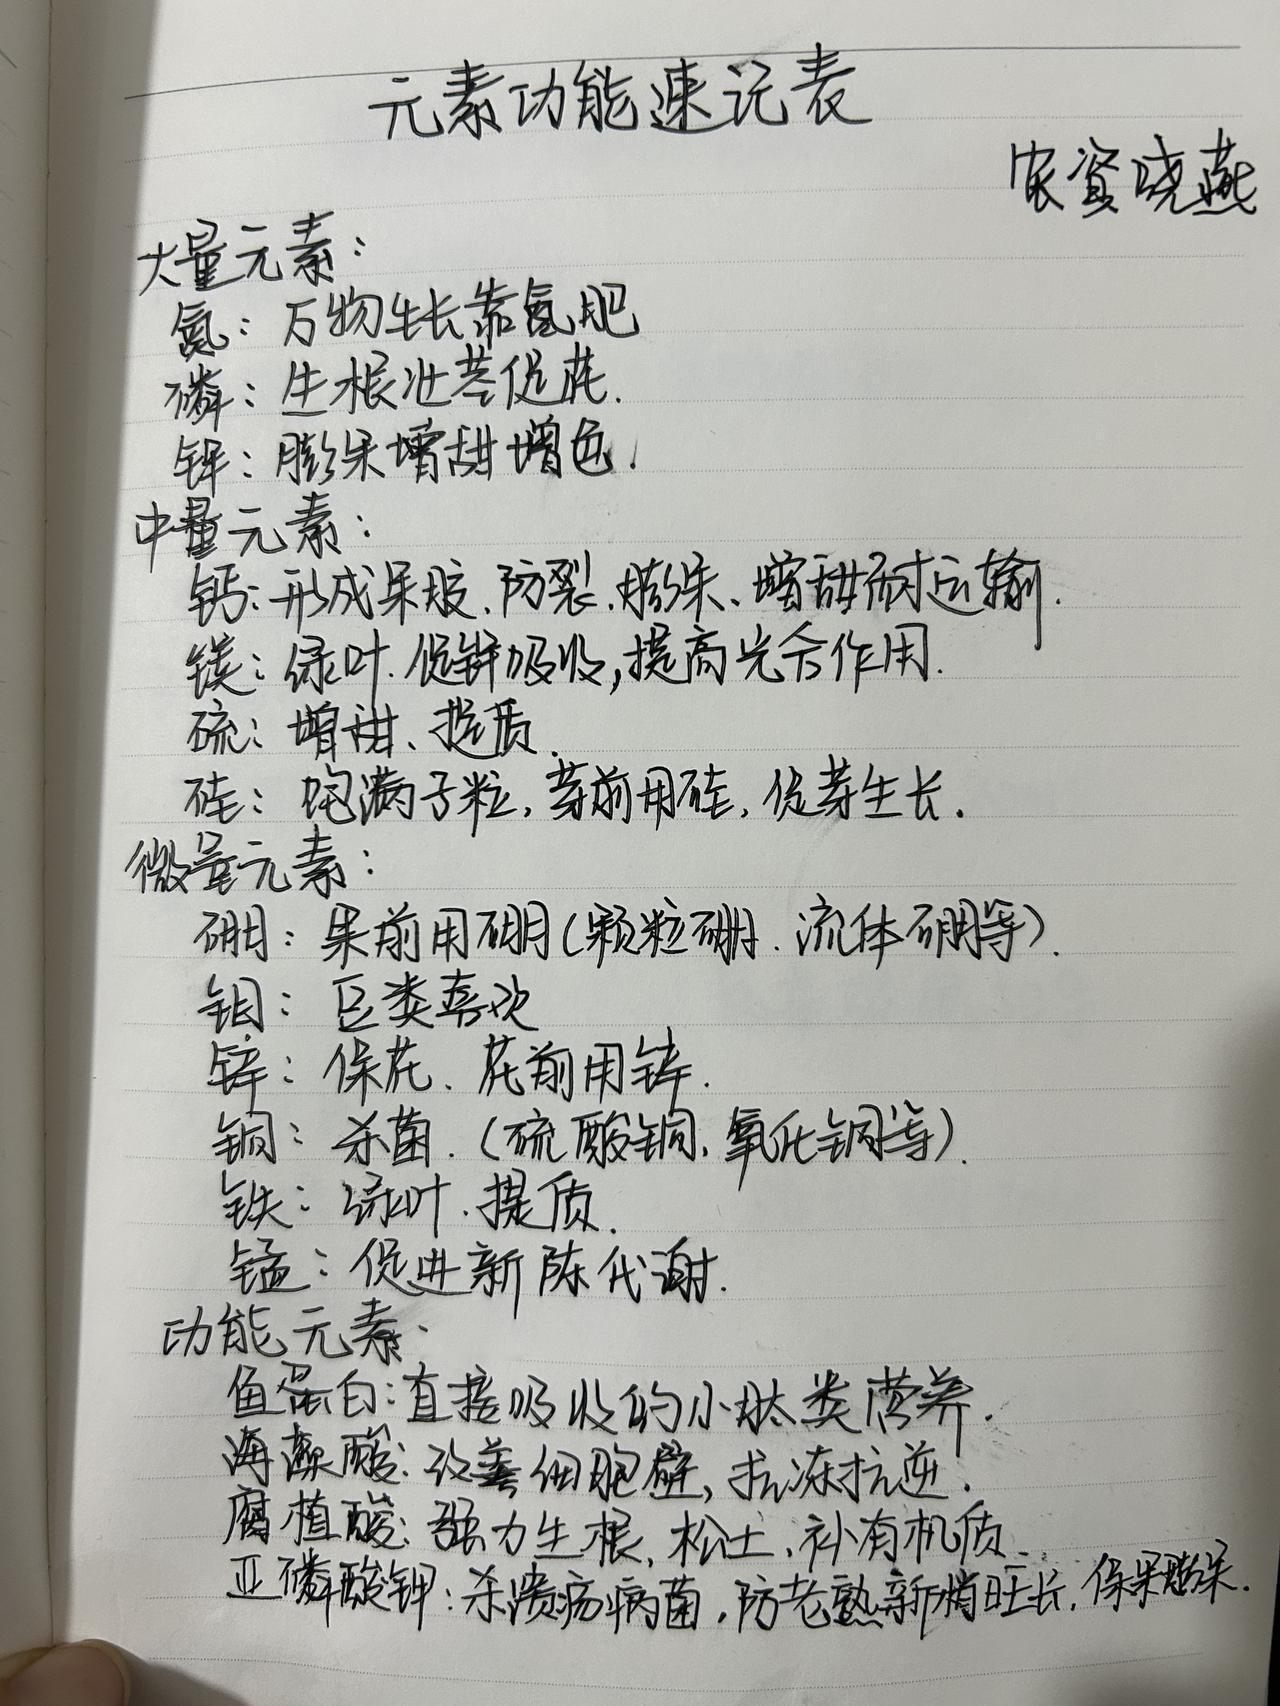 元素功能速记表
农资晓燕
大量元素：
氮：万物生长靠氮肥
磷：生根壮苗促花.
钾：膨果增甜增色.
中量元素：
钙：形成果胶、防裂、膨果、增甜耐运输.
镁：绿叶.促钾吸收,提高光合作用.
硫：增甜、提质.
硅：饱满子粒,芽前用硅,促芽生长.
微量元素：
硼：果前用硼(颗粒硼、流体硼等).
钼：豆类喜欢
锌：保花、花前用锌.
铜：杀菌.(硫酸铜,氧化铜等).
铁：绿叶.提质.
锰：促进新陈代谢.
功能元素：
鱼蛋白：直接吸收的小肽类营养.
海藻酸：改善细胞壁,抗冻抗逆.
腐植酸：强力生根,松土,补有机质.
亚磷酸钾：杀溃疡病菌,防老熟新梢旺长,保果膨果.